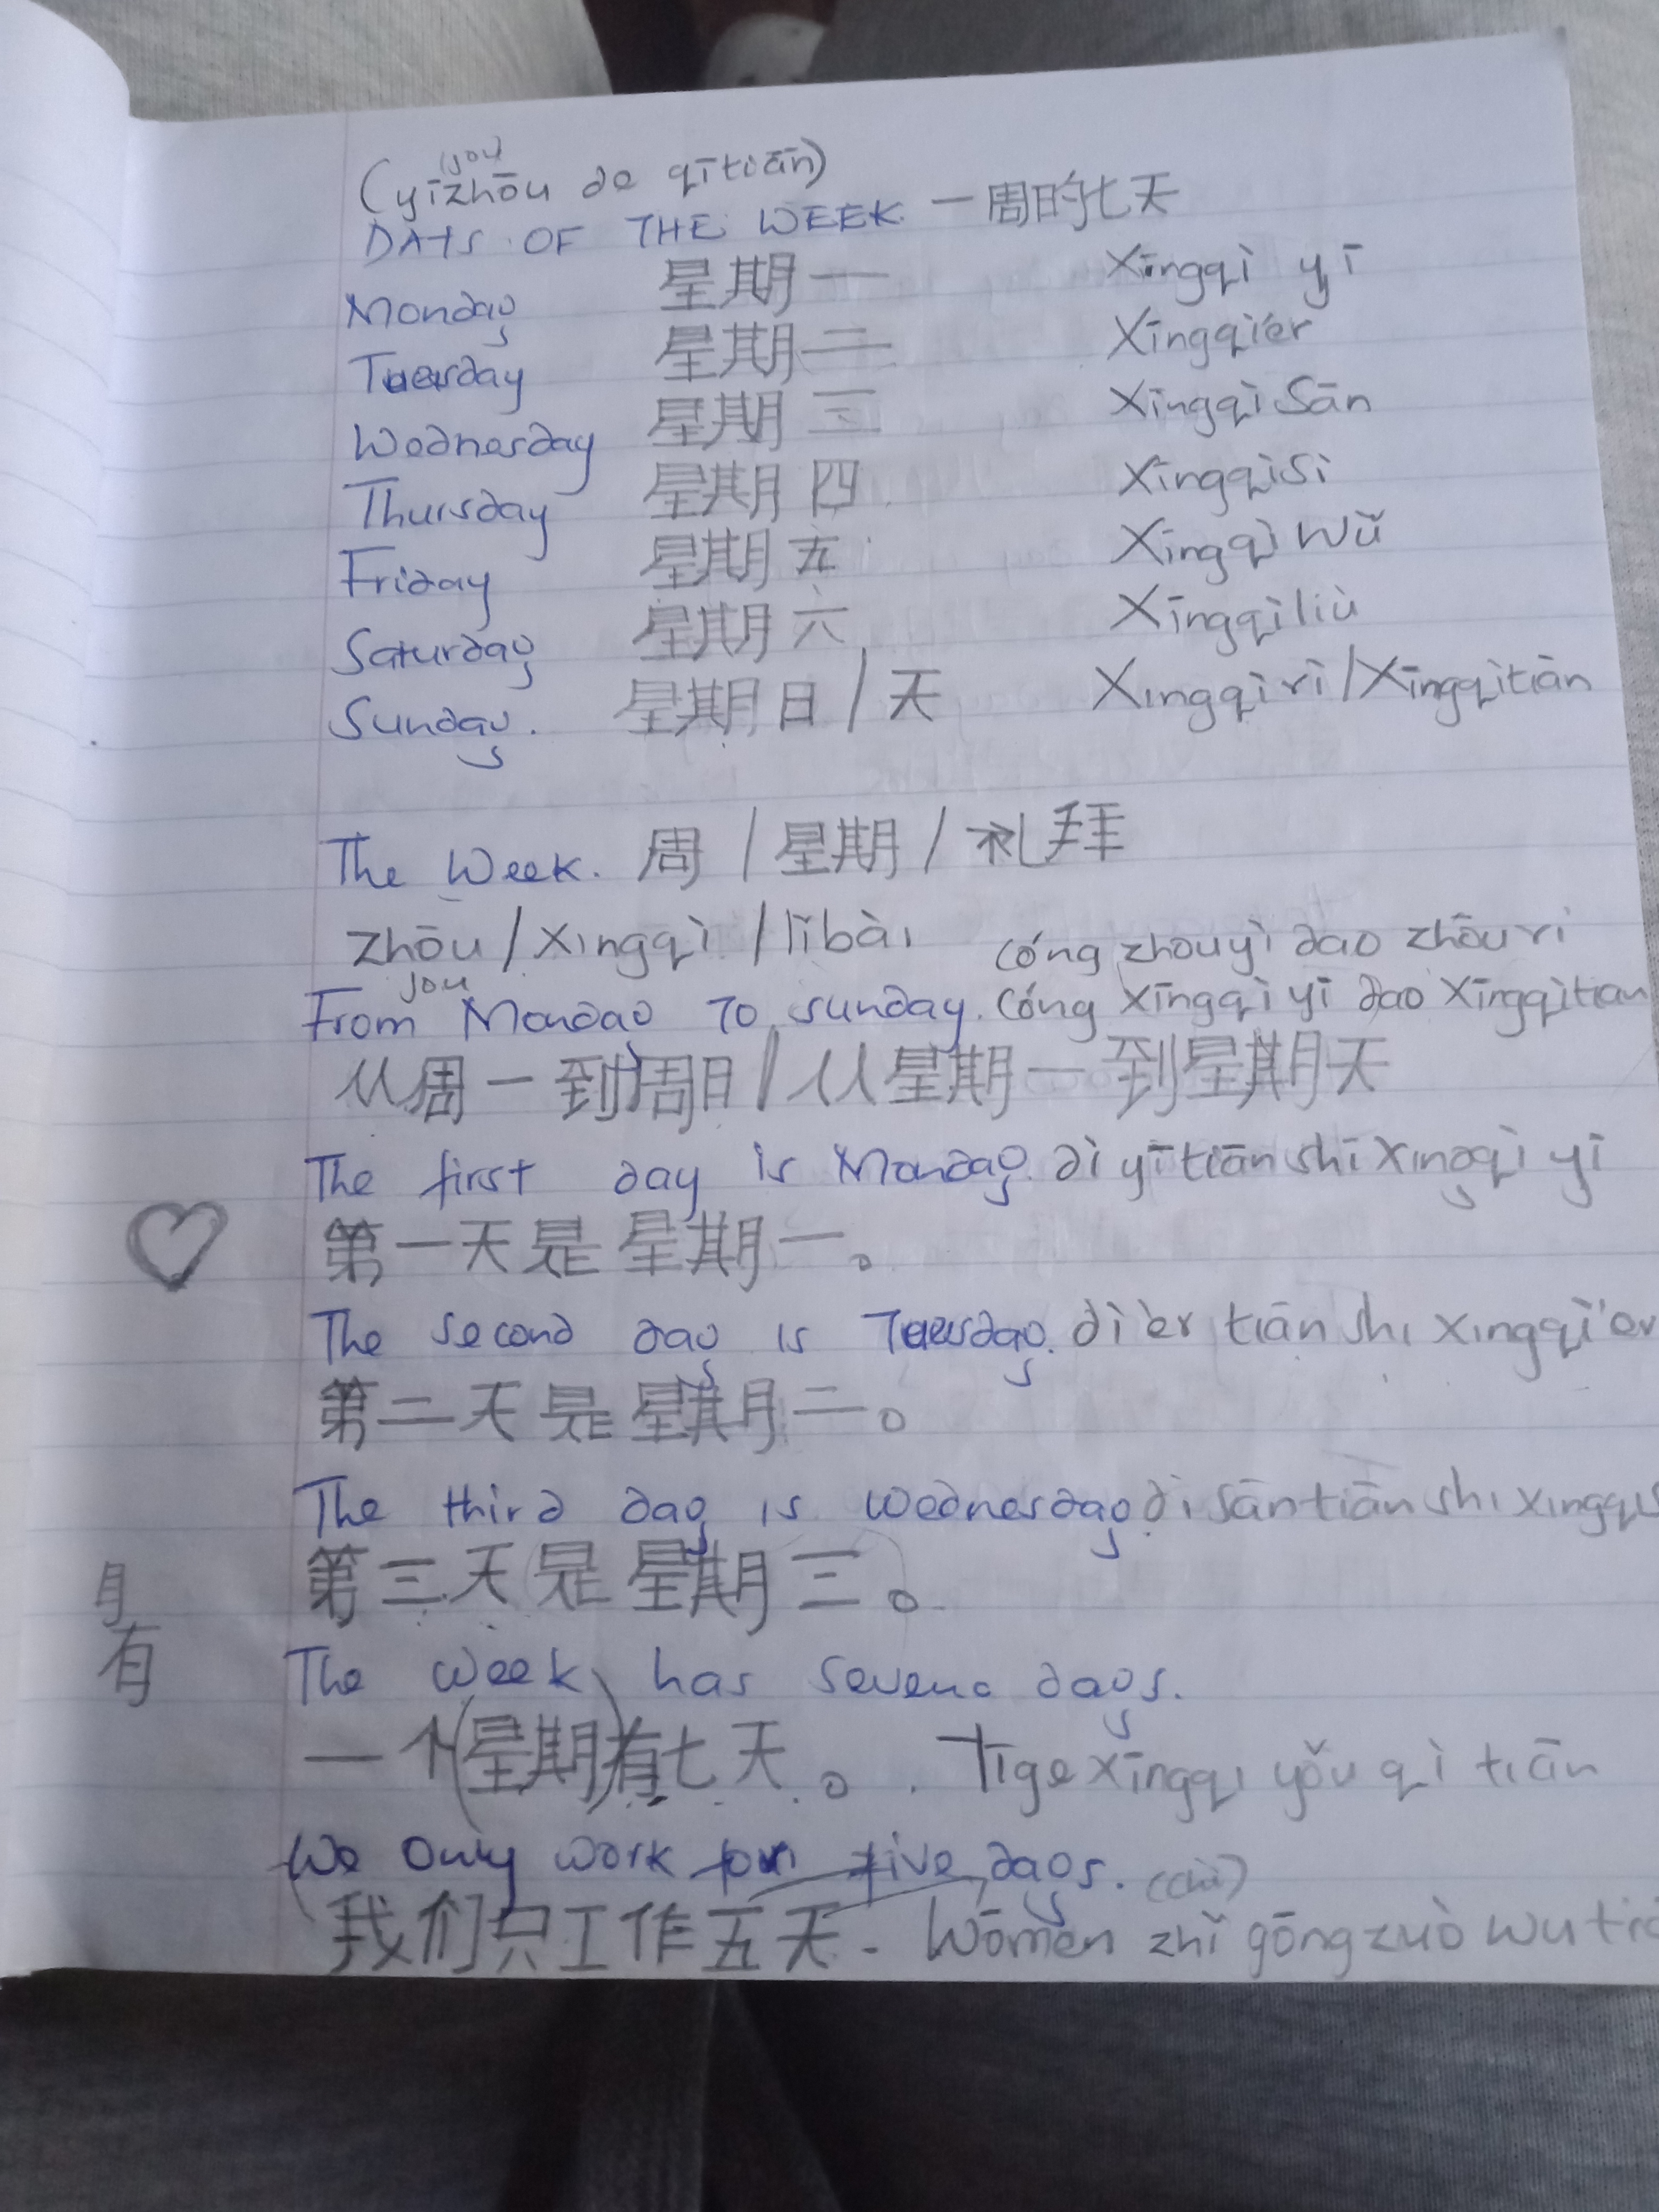 (jou)
(yīzhōu de qītiān)
DAYS OF THE WEEK 一周的七天
Monday 星期一 Xīngqì yī
Tuesday 星期二 Xīngqièr
Wednesday 星期三 Xīngqì Sān
Thursday 星期四 Xīngqìsì
Friday 星期五 Xīngqì Wǔ
Saturday 星期六 Xīngqìliù
Sunday. 星期日/天 Xingqìrì/Xīngqìtiān
The Week. 周/星期/礼拜
Zhōu/Xingqì/lǐbài
jou
cóng zhouyì dao zhōuri
From Monday To sunday. Cóng xīngqì yī dao Xīngqìtian
从周一到周日/从星期一到星期天
The first day is Monday. dì yī tiān shì xingqì yī
第一天是星期一。
The second day is Tuesday. dì èr tiān shi xingqì'er
第二天是星期二。
The third day is Wednesday. dì sān tiān shi xingqis
第三天是星期三。
月
有
The week has seven days.
一个(星期)有七天。 Yīge xīngqi yǒu qì tiān
We only work for five days. (chì)
我们只工作五天. Wǒmen zhǐ gōngzuò wu tiā